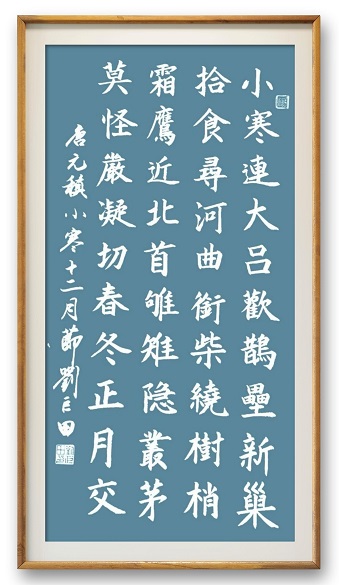 小寒連大呂歡鵲壘新巢
拾食尋河曲銜柴繞樹梢
霜鷹近北首雊雉隐叢茅
莫怪嚴凝切春冬正月交
唐元稹小寒十二月節劉巨田